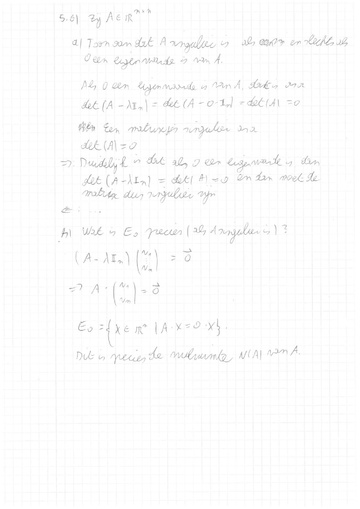 5.61 Zij A ∈ ℝⁿˣⁿ
a) Toon aan dat A singulier is als en slechts als
0 een eigenwaarde is van A.
Als 0 een eigenwaarde is van A, dan is
det(A - λIₙ) = det(A - 0·Iₙ) = det(A) = 0
Een matrix is singulier
det(A) = 0
=> Duidelijk is dat als 0 een eigenwaarde is dan
det(A - λIₙ) = det(A) = 0 en dan moet de
matrix dus singulier zijn
<= ....
b) Wat is E₀ precies (als A singulier is)?
(A - λIₙ) = 0⃗
=> A · = 0⃗
E₀ = {X ∈ ℝⁿ | A·X = 0·X}.
Dit is precies de nulruimte N(A) van A.